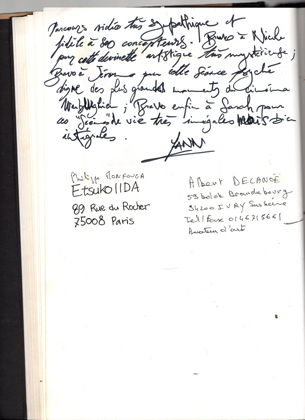 Parcours vidéo très sympathique et
fidèle à son concepteur. Bravo à Nicole
pour cette devinette artistique très mystérieuse ;
Bravo à Jérome pour cette séance psyché
digne des plus grands moments du cinéma
; Bravo enfin à Sarah pour
ces de vie très inégales mais bien
intégrales.
YANN
Philippe MONFOUGA
Etsuko IIDA
89 Rue du Rocher
75008 Paris
Albert DELANOË
53 Brandebourg
94200 IVRY Sur Seine
Tel/Fax 0146715661
Amateur d'art